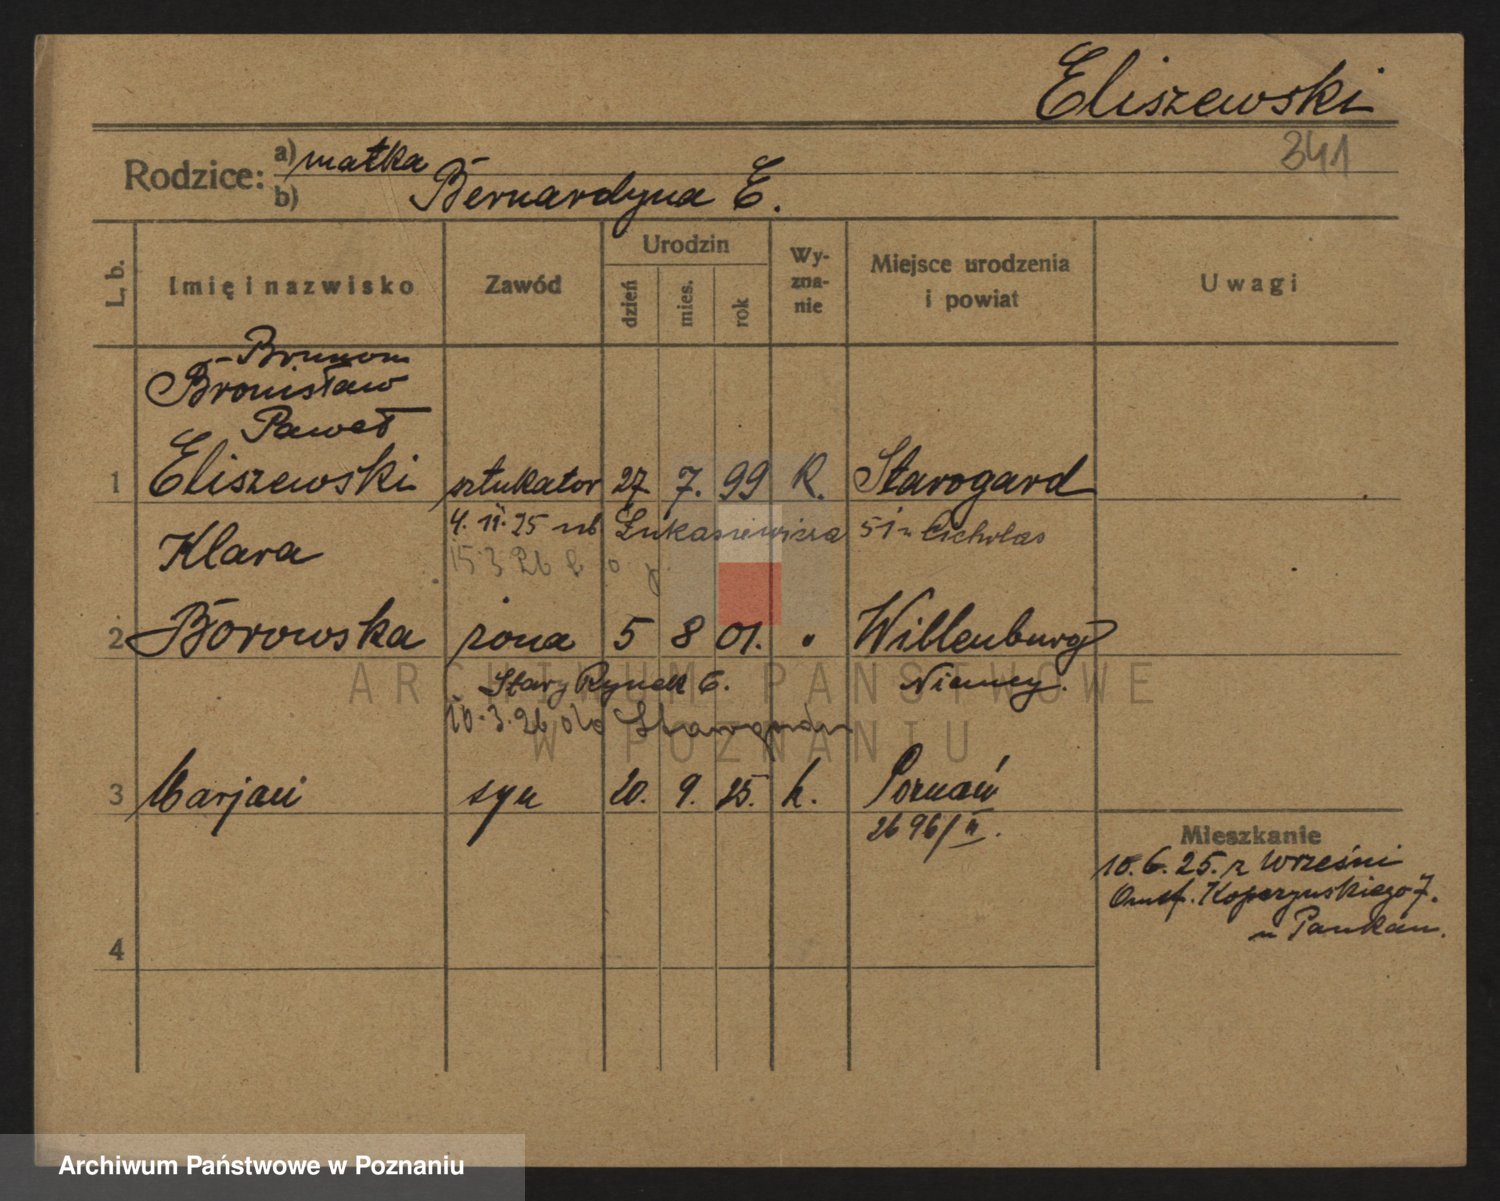 Eliszewski
341
Rodzice: a) matka
b) Bernardyna E.
L. b.
Imię i nazwisko
Zawód
Urodzin
dzień
mies.
rok
Wy-
zna-
nie
Miejsce urodzenia
i powiat
Uwagi
Brunon
Bronisław
Paweł
1 Eliszewski sztukator 27 7. 99 R. Starogard
4. 11. 25 Łukasiewicza 51
Klara
15.3 26
2 Borowska żona 5 8 01. " Willenburg
Stary Rynek 6. Niemcy.
10.3.26 do
3 Marjan syn 20. 9. 25. k. Poznań
2696/II.
Mieszkanie
10.6.25. z Wrześni
7.
4
ARCHIWUM PAŃSTWOWE
W POZNANIU
Archiwum Państwowe w Poznaniu